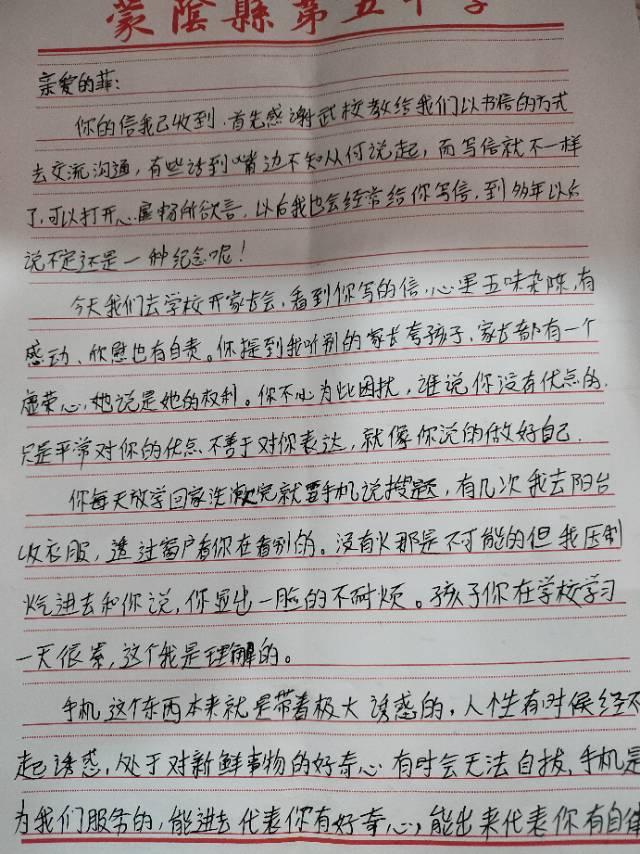 蒙陰縣第五中学
亲爱的菲:
你的信我已收到.首先感谢武校教给我们以书信的方式
去交流沟通,有些话到嘴边不知从何说起,而写信就不一样
了,可以打开心扉畅所欲言,以后我也会经常给你写信,到多年以后
说不定还是一种纪念呢!
今天我们去学校开家长会,看到你写的信,心里五味杂陈,有
感动、欣慰也有自责。你提到我听别的家长夸孩子,家长都有一个
虚荣心,她说是她的权利。你不必为此困扰,谁说你没有优点的.
只是平常对你的优点不善于对你表达,就像你说的做好自己.
你每天放学回家洗漱完就要手机说搜题,有几次我去阳台
收衣服,透过窗户看你在看别的。没有火那是不可能的但我压制
火气进去和你说,你显出一脸的不耐烦。孩子你在学校学习
一天很累,这个我是理解的。
手机这个东西本来就是带着极大诱惑的,人性有时候经不
起诱惑,处于对新鲜事物的好奇心有时会无法自拔,手机是
为我们服务的,能进去代表你有好奇心,能出来代表你有自律